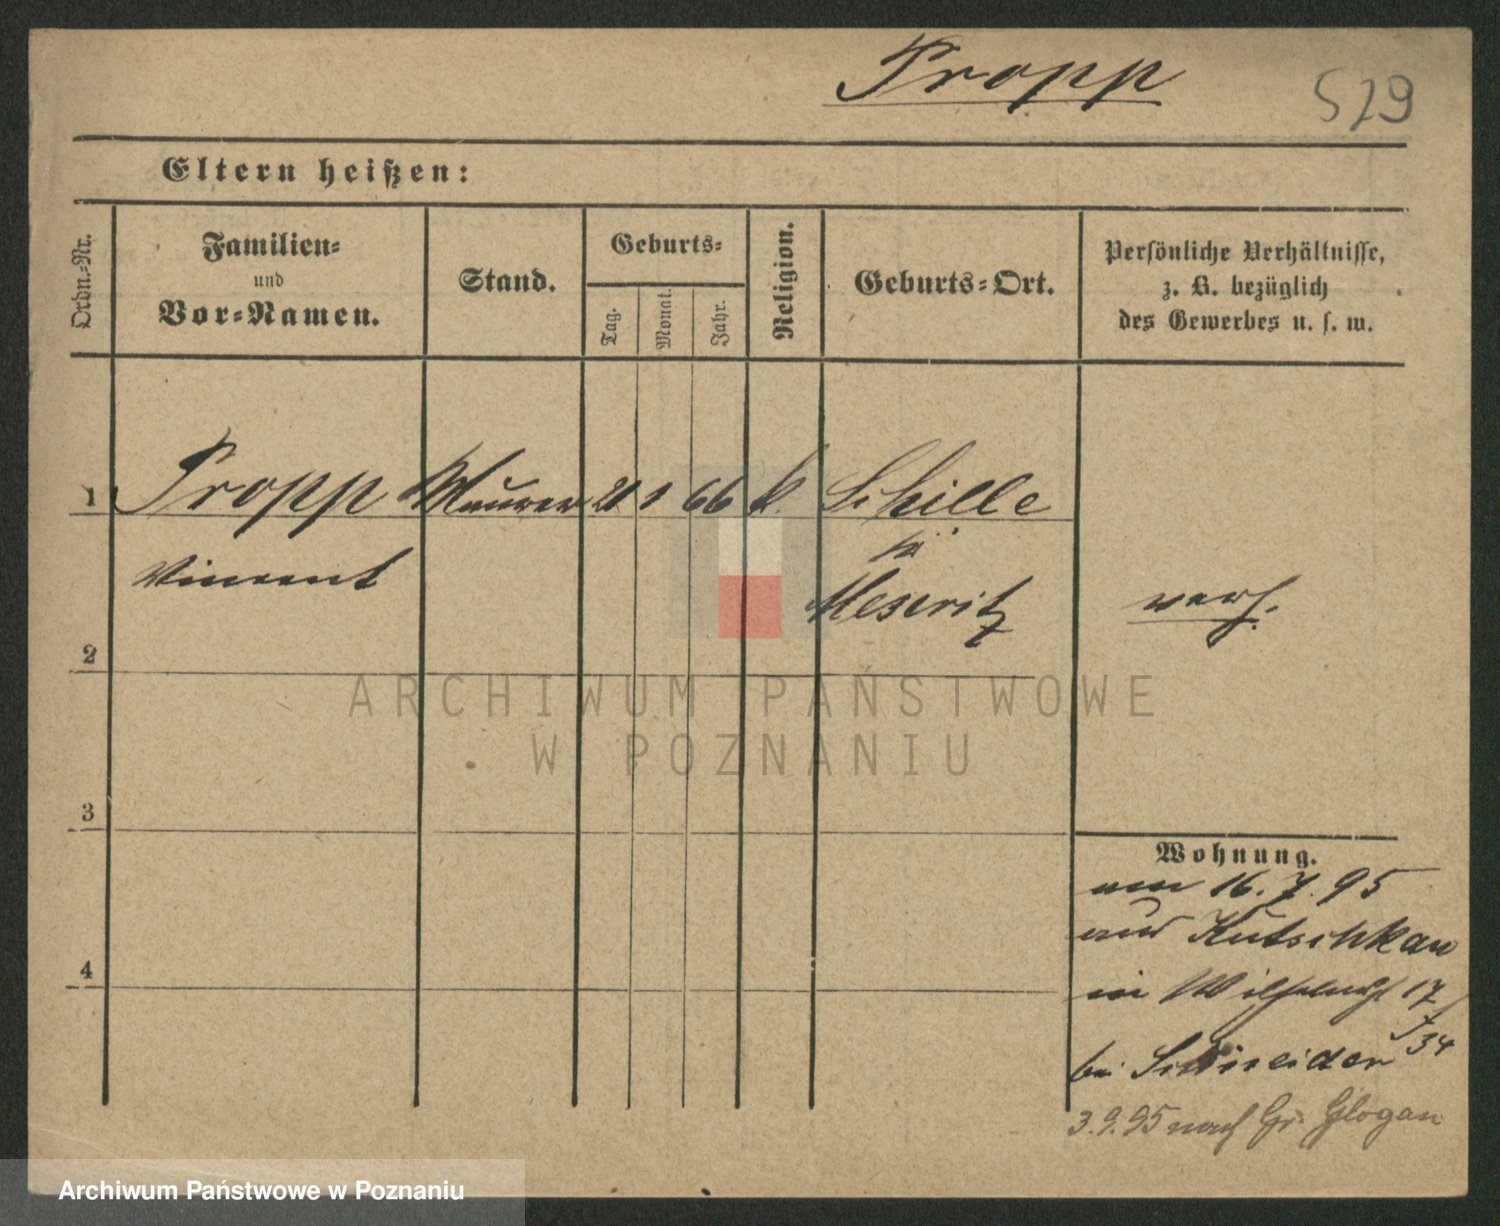 Tropp
529
Eltern heißen:
Ordn.-Nr.
Familien-
und
Vor-Namen.
Stand.
Geburts-
Tag.
Monat.
Jahr.
Religion.
Geburts-Ort.
Persönliche Verhältnisse,
z. B. bezüglich
des Gewerbes u. s. w.
1 Tropp Maurer 21 1 66 k. Schille
Vincent
Meseritz
verh.
2
ARCHIWUM PAŃSTWOWE
W POZNANIU
3
4
Wohnung.
am 16.7.95
aus Kutschkau
in 17
34
bei Schneider
3.9.95 nach Gr. Glogau
Archiwum Państwowe w Poznaniu